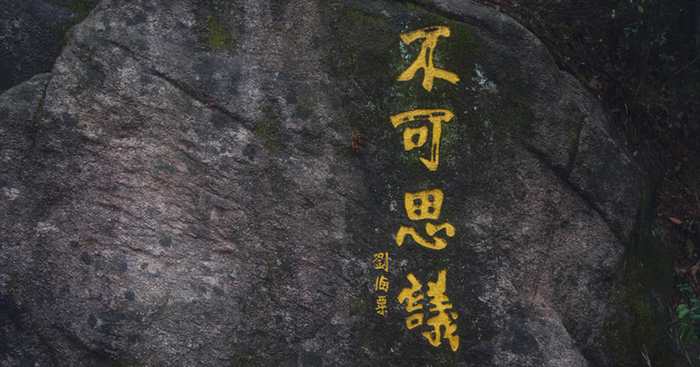 不可思議
劉海粟